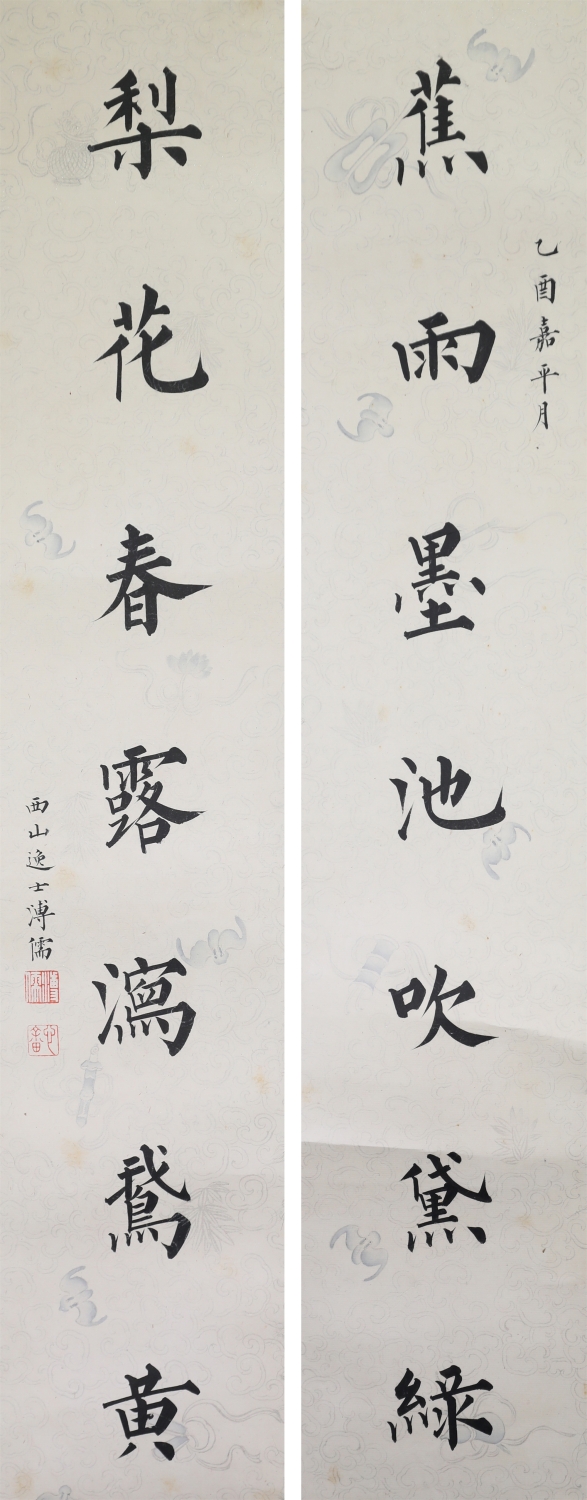 乙酉嘉平月
蕉雨墨池吹黛綠
梨花春露瀉鵞黃
西山逸士溥儒